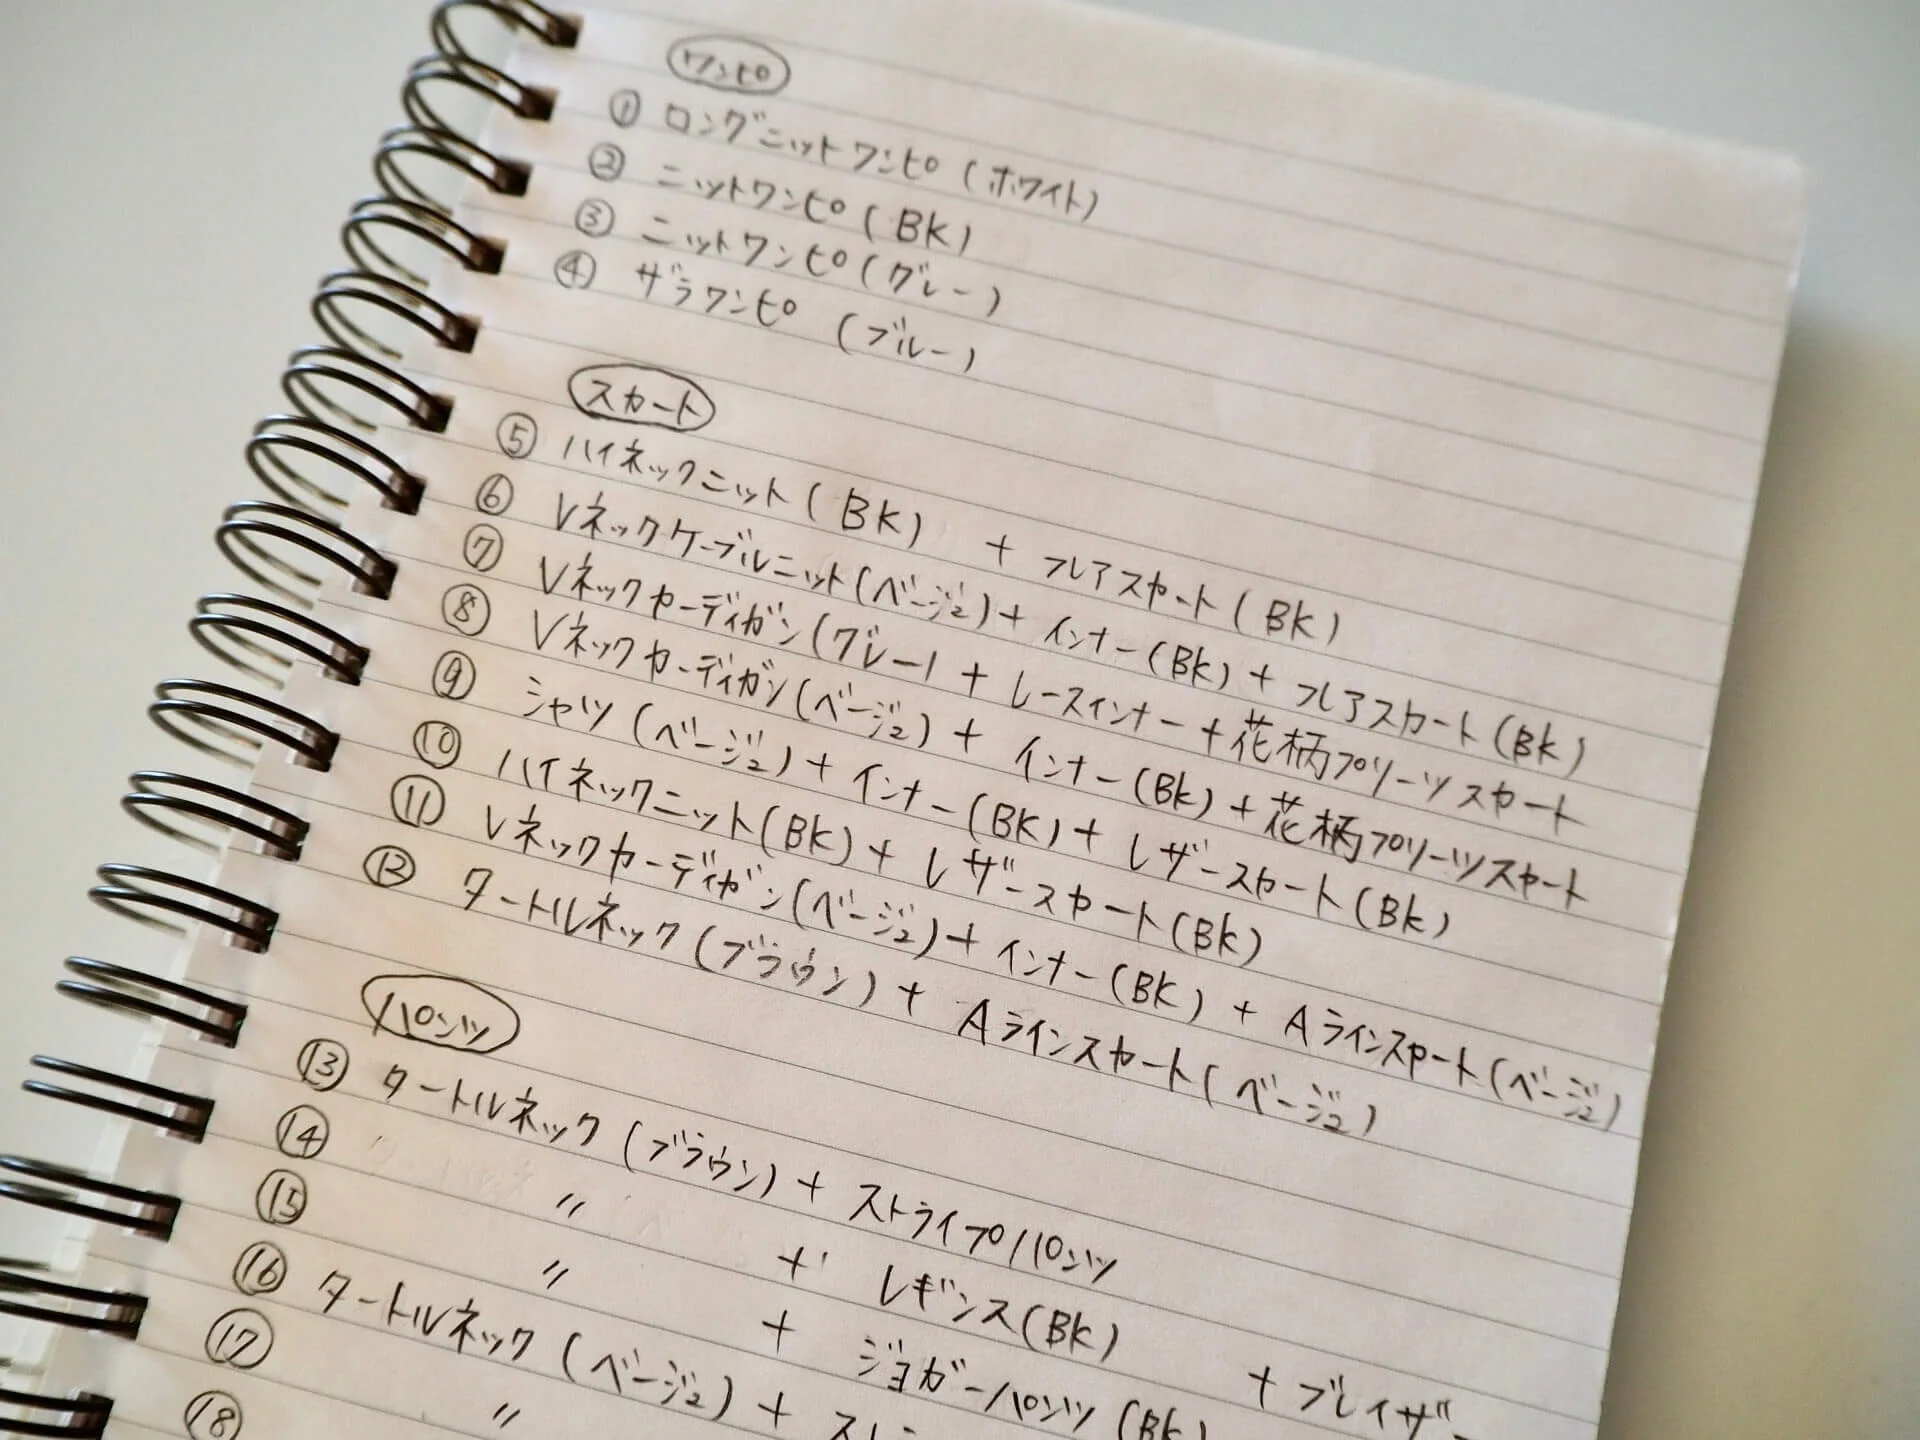 ワンピ
① ロングニットワンピ (ホワイト)
② ニットワンピ (BK)
③ ニットワンピ (グレー)
④ ザラワンピ (ブルー)
スカート
⑤ ハイネックニット (BK) + フレアスカート (BK)
⑥ Vネックケーブルニット (ベージュ) + インナー (BK) + フレアスカート (BK)
⑦ Vネックカーディガン (グレー) + レースインナー + 花柄プリーツスカート
⑧ Vネックカーディガン (ベージュ) + インナー (BK) + 花柄プリーツスカート
⑨ シャツ (ベージュ) + インナー (BK) + レザースカート (BK)
⑩ ハイネックニット (BK) + レザースカート (BK)
⑪ Vネックカーディガン (ベージュ) + インナー (BK) + Aラインスカート (ベージュ)
⑫ タートルネック (ブラウン) + Aラインスカート (ベージュ)
パンツ
⑬ タートルネック (ブラウン) + ストライプパンツ
⑭ 〃 + レギンス (BK) + ブレイザー
⑮ 〃 + ジョガーパンツ (BK)
⑯ タートルネック (ベージュ) + スト
⑰ 〃
⑱